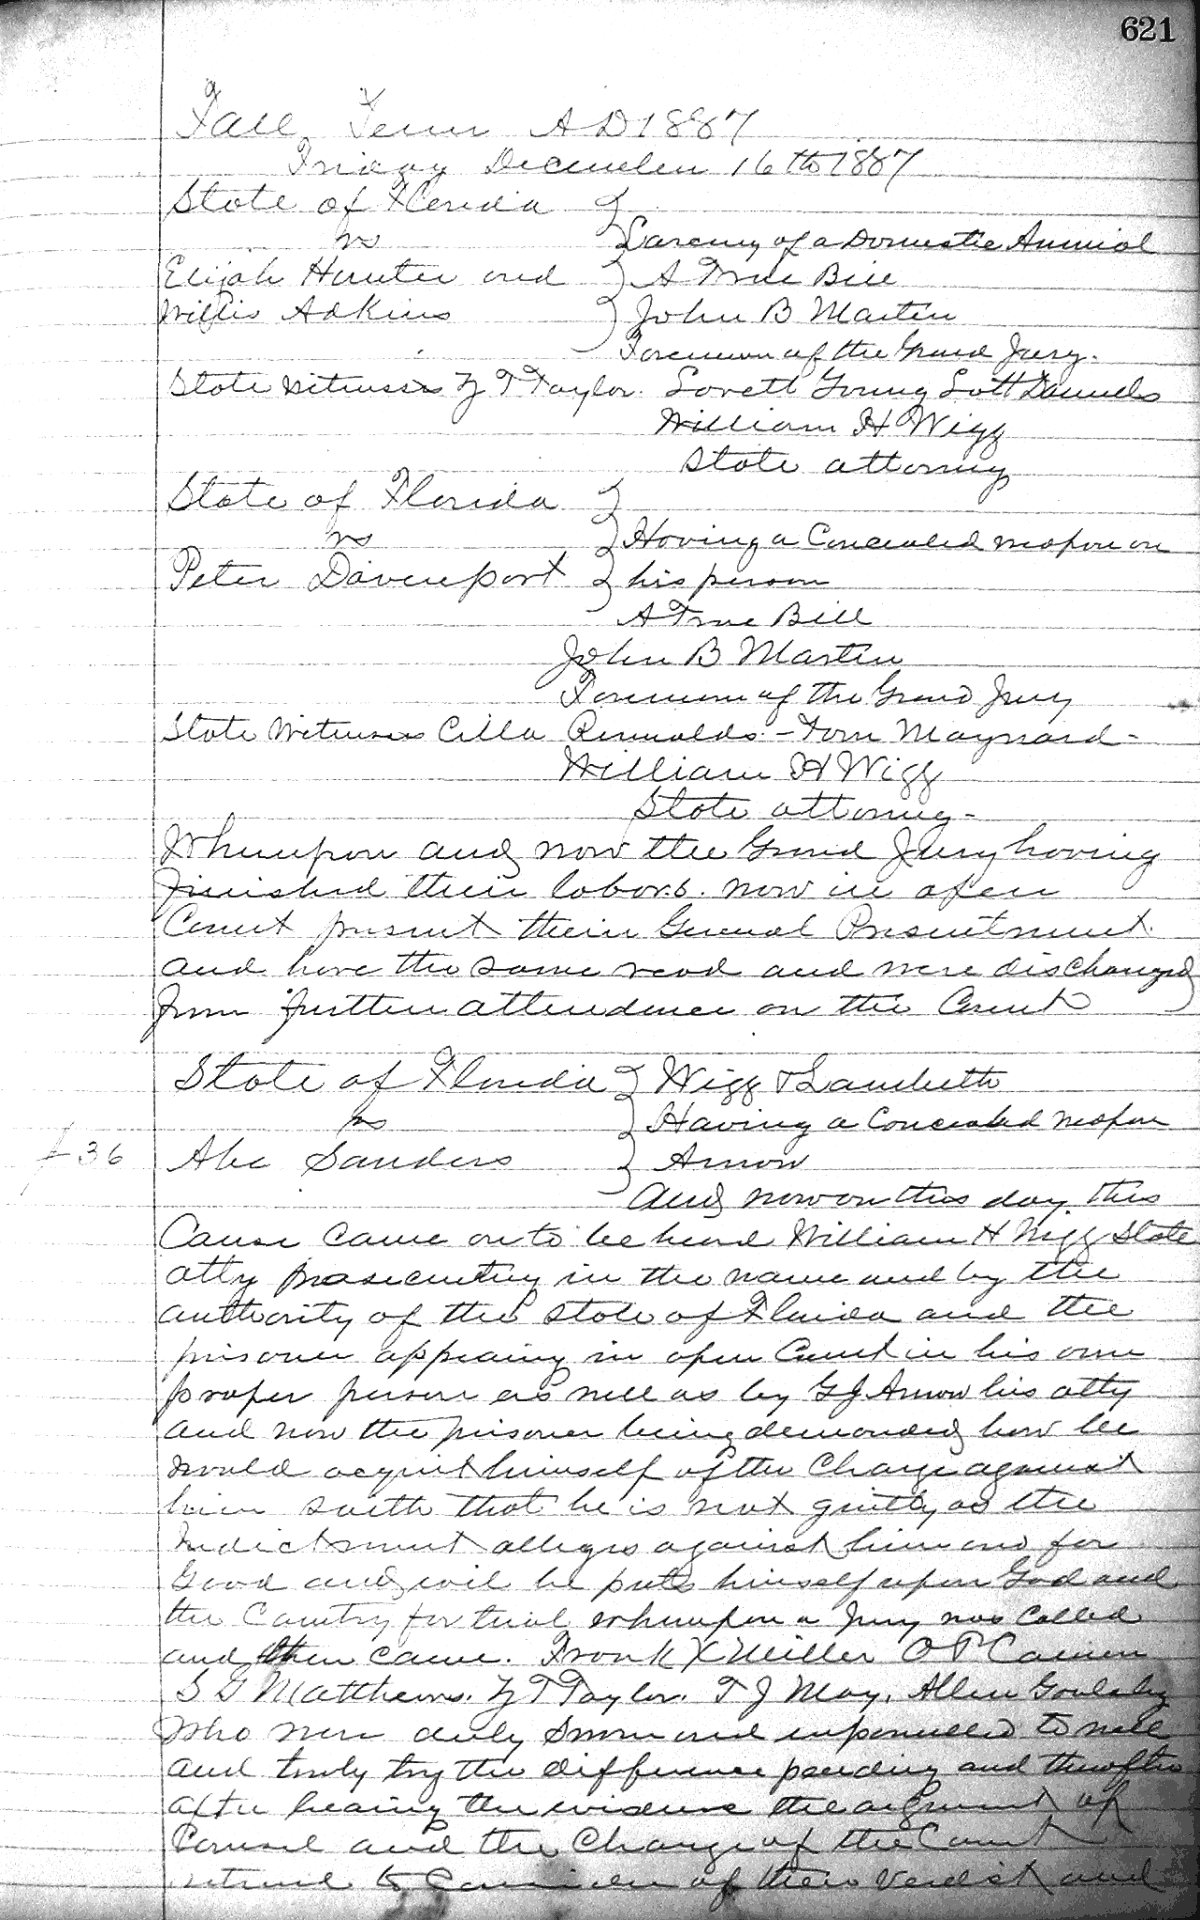 621
Fall Term A D 1887
Friday December 16th 1887
State of Florida
vs
Larceny of a Domestic Animal
Elijah Hunter and
A True Bill
Willis Adkins
John B Martin
Foreman of the Grand Jury.
State Witnesses Z T Taylor. Lovett Young Lott Daniels
William H Wigg
State attorney
State of Florida
vs
Having a Concealed weapon on
Peter Davenport
his person
A True Bill
John B Martin
Foreman of the Grand Jury
State Witnesses Cilla Rinnalds - Tom Maynard -
William H Wigg
State attorney -
Whereupon and now the Grand Jury having
finished their labors. now in open
Court present their General Presentment
and have the same read and were discharged
from further attendence on the Court
State of Florida
Wigg & Lambeth
vs
Having a Concealed weapon
36
Abe Sanders
Arnow
And now on this day this
Cause came on to be heard William H Wigg State
atty prosecuting in the name and by the
authority of the State of Florida and the
prisoner appearing in open Court in his own
proper person as well as by G J Arnow his atty
and now the prisoner being demanded how he
would acquit himself of the Charge against
him saith that he is not guilty as the
Indictment alleges against him and for
Good and evil he puts himself upon God and
the Country for trial whereupon a Jury was Called
and then came. Frank X Miller O P Cannon
S G Matthews. Z T Taylor. T J May. Allen Goulsby
Who were duly sworn and empanelled to well
and truly try the difference pending and
after hearing the evidence the argument of
Counsel and the Charge of the Court
retired to Consider of their Verdict and